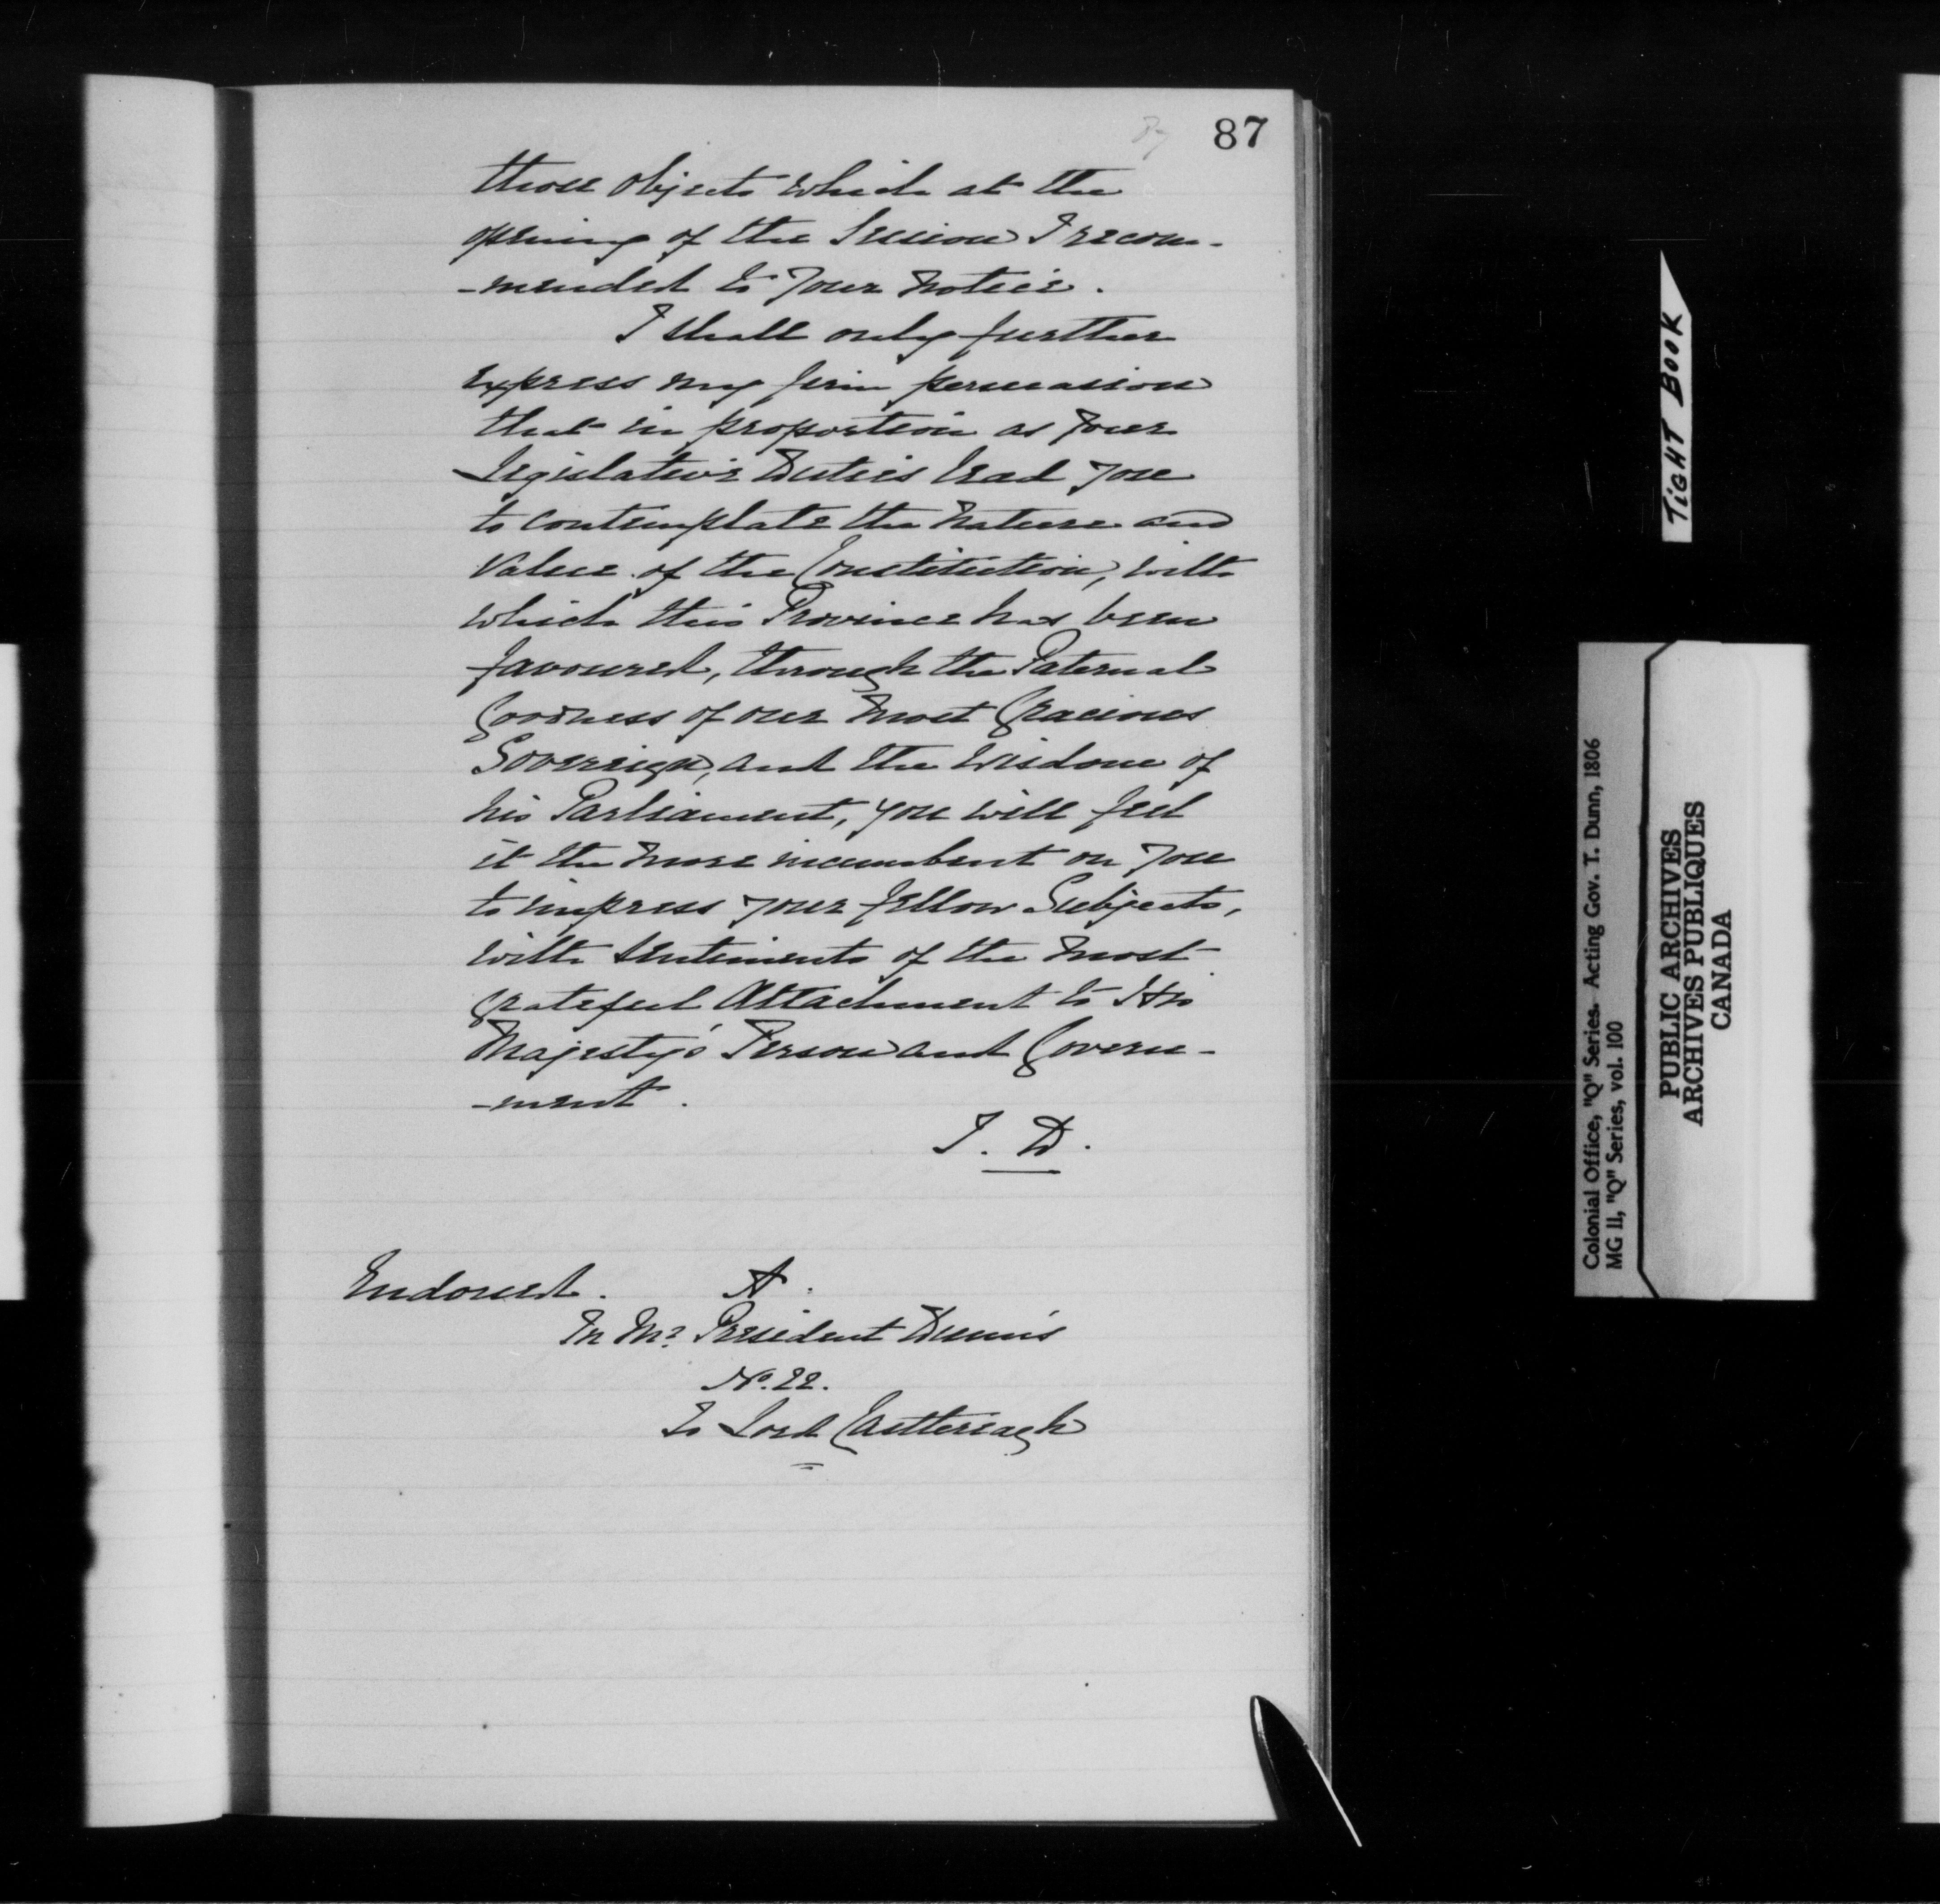 87
87
those objects which at the
opening of the Session I recom-
-mended to your notice.
I shall only further
express my firm persuasion
that in proportion as your
Legislative Duties lead you
to contemplate the nature and
Value of the Constitution, with
which this Province has been
favoured, through the Paternal
Goodness of our most Gracious
Sovereign, and the wisdom of
his Parliament, you will feel
it the more incumbent on you
to impress your fellow Subjects,
with sentiments of the most
grateful Attachment to His
Majesty's Person and Govern-
-ment.
T. D.
Endorsed. A.
In Mr. President Dunn's
No. 22.
To Lord Castlereagh
TIGHT BOOK
Colonial Office, "Q" Series. Acting Gov. T. Dunn, 1806
MG 11, "Q" Series, vol. 100
PUBLIC ARCHIVES
ARCHIVES PUBLIQUES
CANADA